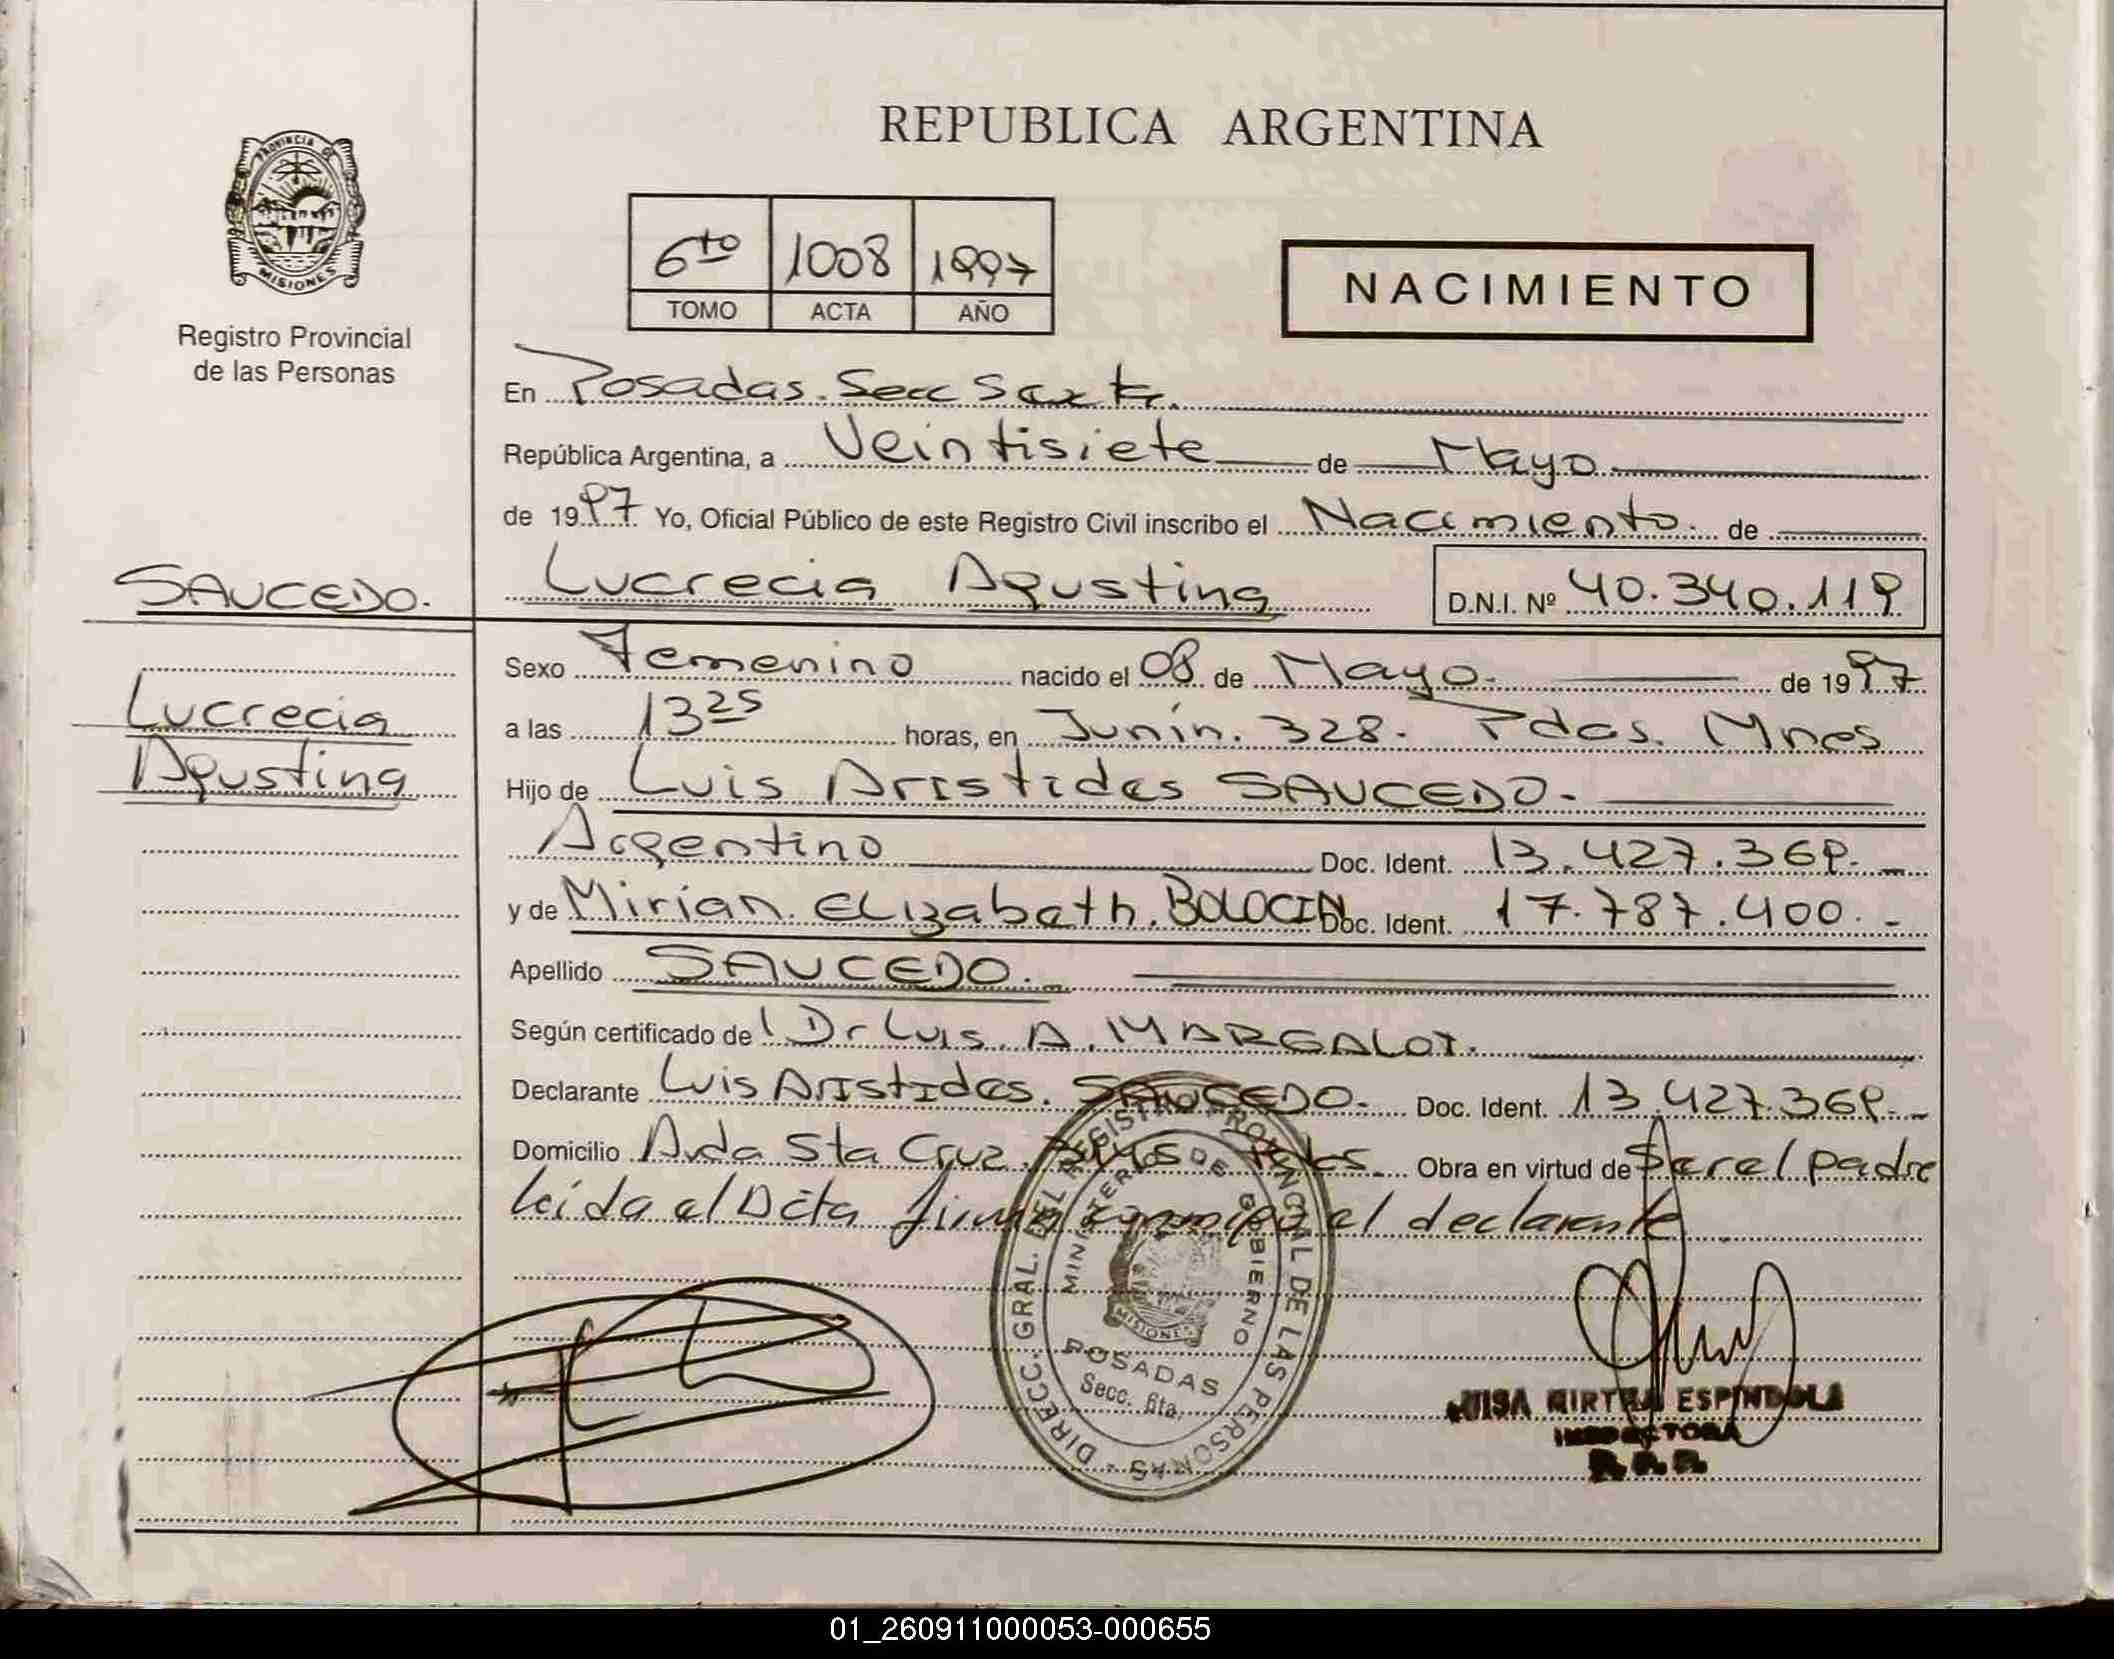 REPUBLICA ARGENTINA
PROVINCIA DE
MISIONES
Registro Provincial
de las Personas
6to 1008 1997
TOMO ACTA AÑO
NACIMIENTO
En Posadas. Secc Sexta.
República Argentina, a Veintisiete de Mayo
de 1997 Yo, Oficial Público de este Registro Civil inscribo el Nacimiento. de
SAUCEDO.
Lucrecia Agustina D.N.I. Nº 40.340.119
Lucrecia
Agustina
Sexo Femenino nacido el 08 de Mayo. de 1997
a las 13 25 horas, en Junín. 328. Pdas. Mnes
Hijo de Luis Aristides SAUCEDO.
Argentino Doc. Ident. 13.427.369.
y de Mirian. Elizabeth. BOLOCIN Doc. Ident. 17.787.400.
Apellido SAUCEDO.
Según certificado de l Dr Luis. A. MARGALOT.
Declarante Luis Aristides. SAUCEDO. Doc. Ident. 13.427.369.
Domicilio Avda Sta Cruz Obra en virtud de Ser el padre
leida el Acta firma conmigo el declarante
DIRECC. GRAL. DEL REGISTRO PROVINCIAL DE LAS PERSONAS
MINISTERIO DE GOBIERNO
MISIONES
POSADAS
Secc. 6ta.
LUISA MIRTHA ESPINDOLA
INSPECTORA
R.P.P.
01_260911000053-000655